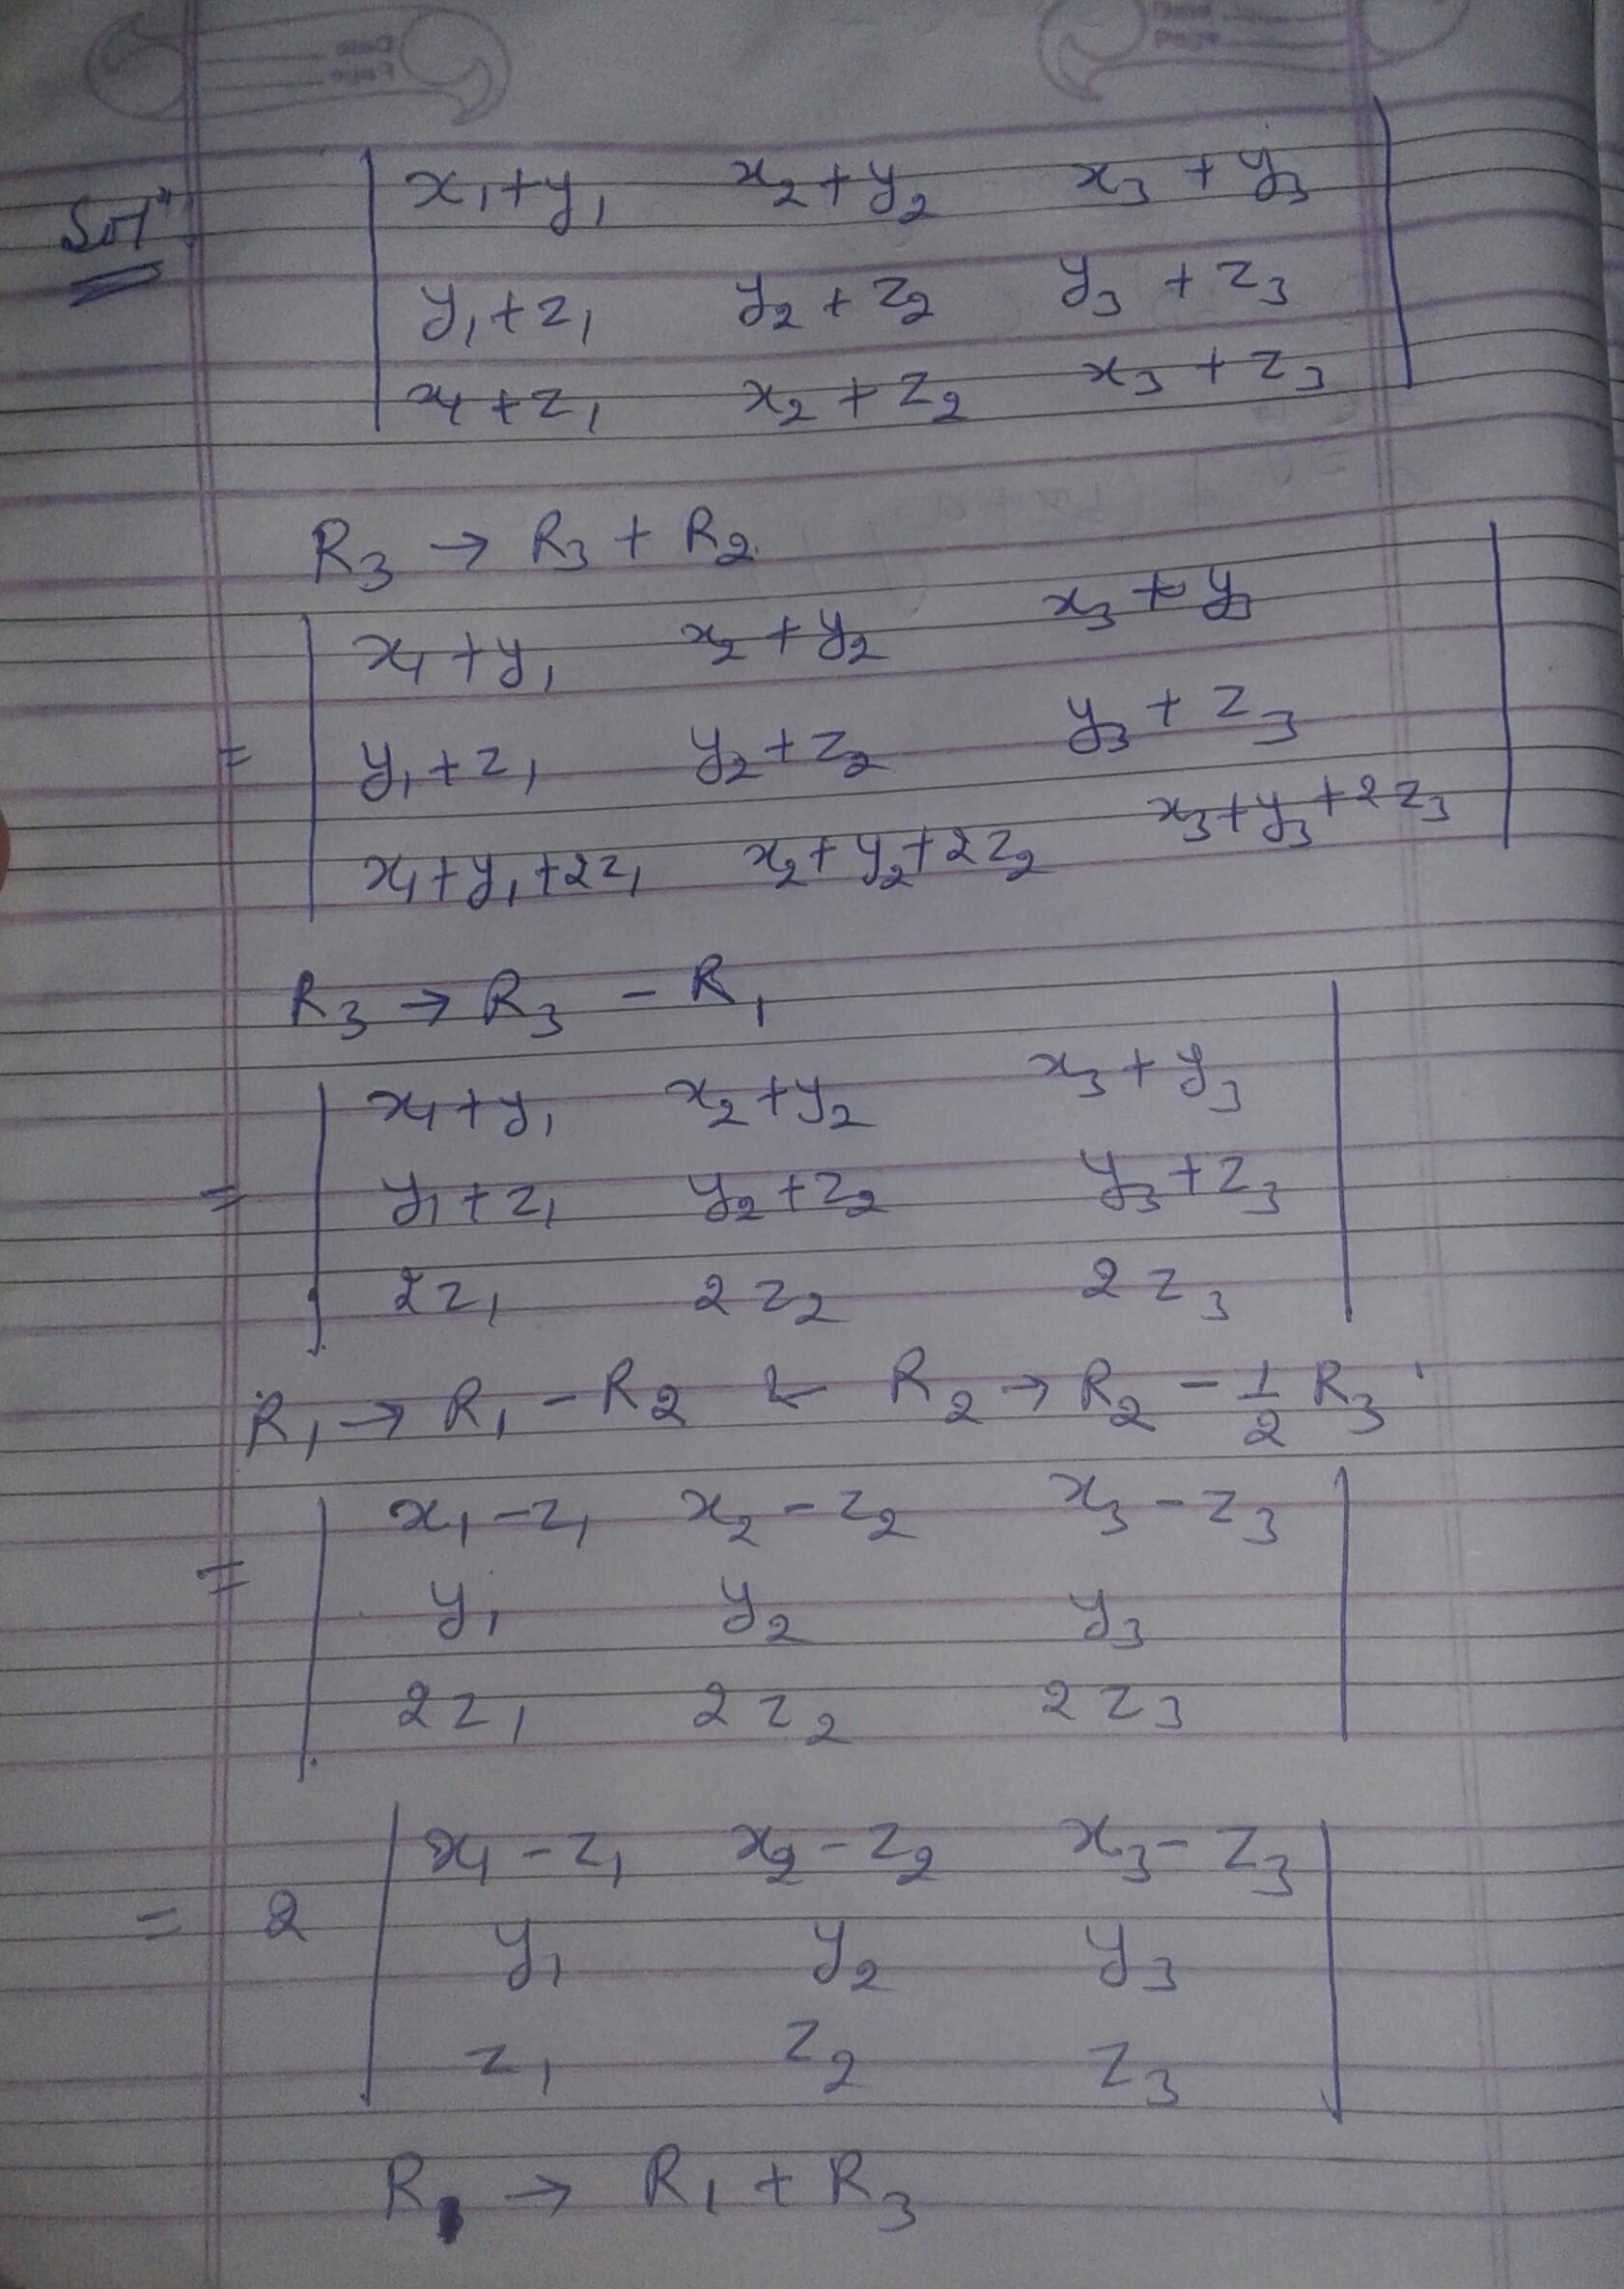 Date
Page
Date
Page
Solⁿ:
| x₁+y₁ x₂+y₂ x₃+y₃ |
| y₁+z₁ y₂+z₂ y₃+z₃ |
| x₁+z₁ x₂+z₂ x₃+z₃ |
R₃ → R₃ + R₂
| x₁+y₁ x₂+y₂ x₃+y₃ |
= | y₁+z₁ y₂+z₂ y₃+z₃ |
| x₁+y₁+2z₁ x₂+y₂+2z₂ x₃+y₃+2z₃ |
R₃ → R₃ - R₁
| x₁+y₁ x₂+y₂ x₃+y₃ |
= | y₁+z₁ y₂+z₂ y₃+z₃ |
| 2z₁ 2z₂ 2z₃ |
R₁ → R₁ - R₂ & R₂ → R₂ - 1/2 R₃
= | x₁-z₁ x₂-z₂ x₃-z₃ |
| y₁ y₂ y₃ |
| 2z₁ 2z₂ 2z₃ |
| x₁-z₁ x₂-z₂ x₃-z₃ |
= 2 | y₁ y₂ y₃ |
| z₁ z₂ z₃ |
R₁ → R₁ + R₃